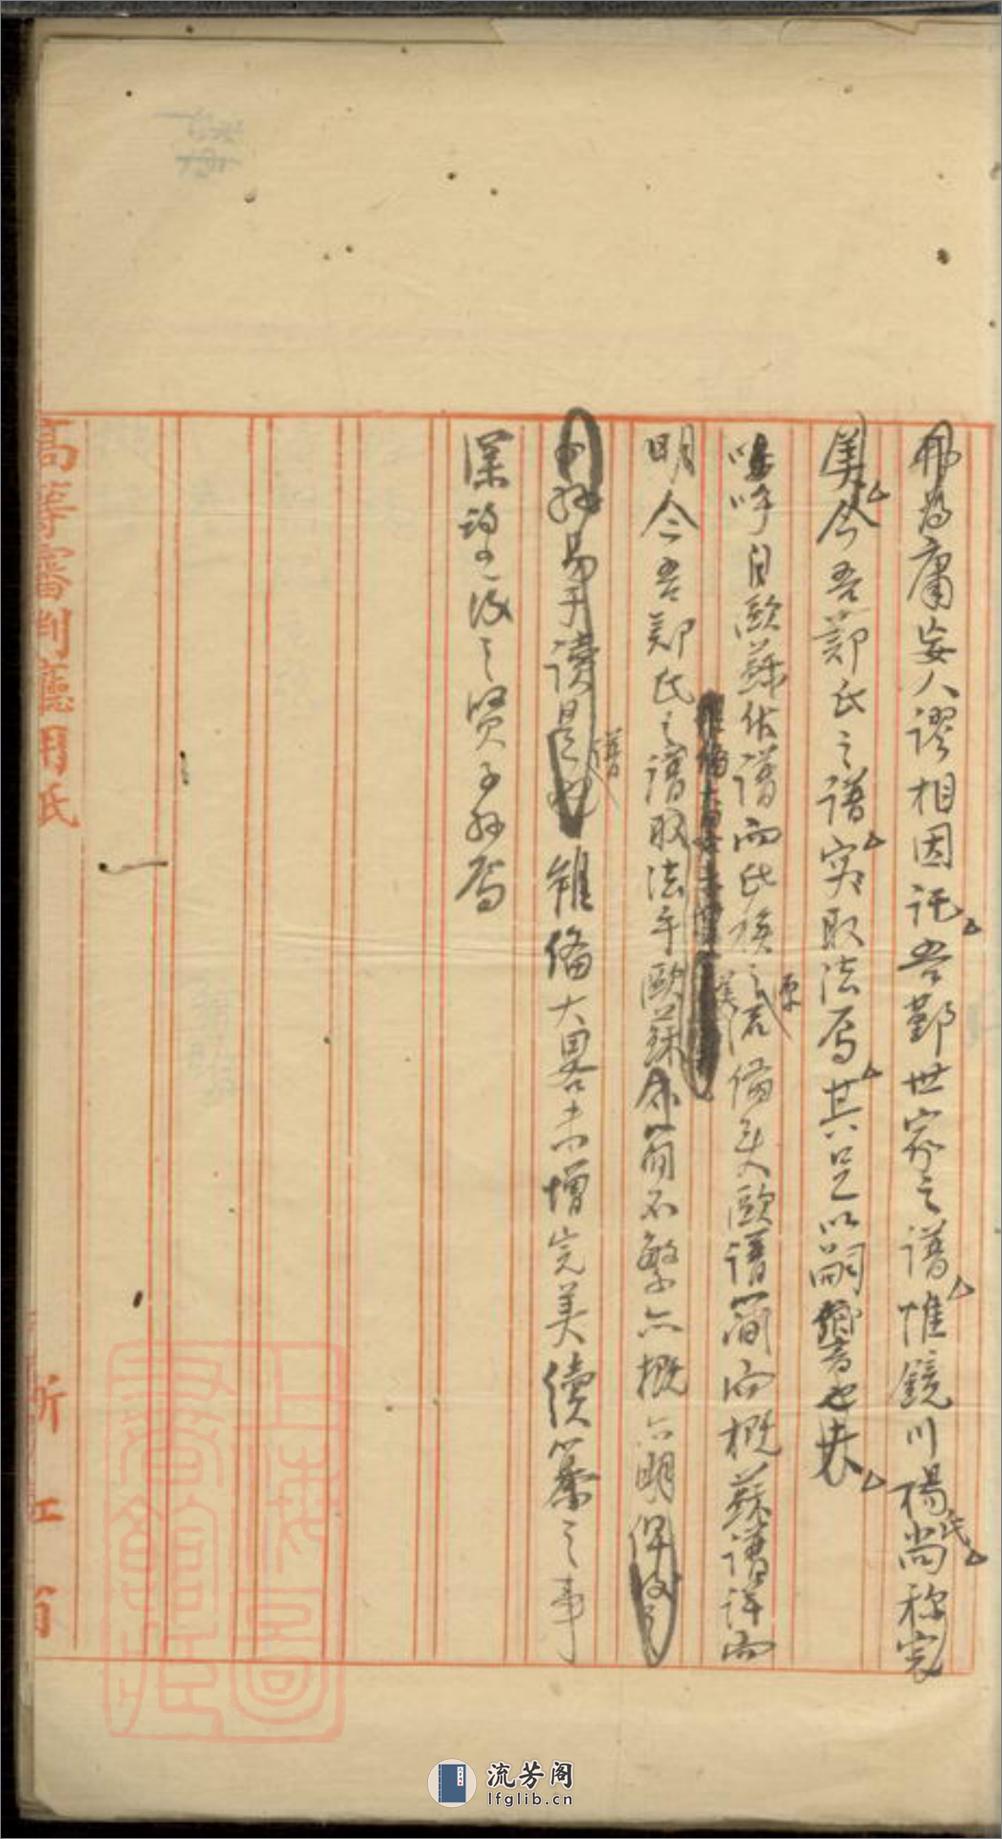 弗為庸妄人謬相因託吾鄞世家之譜惟鏡川楊氏尚稱完
美今吾鄭氏之譜實取法焉其足以嗣響也夫
嗚呼自歐蘇作譜而氏族之源流備矣歐譜簡而概蘇譜詳而
明今吾鄭氏之譜取法乎歐蘇簡不繁亦概亦明
易于讀是譜雖備大畧尚增完美續纂之事
深望後之賢子孫焉
高等審判廳用紙
浙江省
上海圖書館藏
流芳阁
lfglib.cn